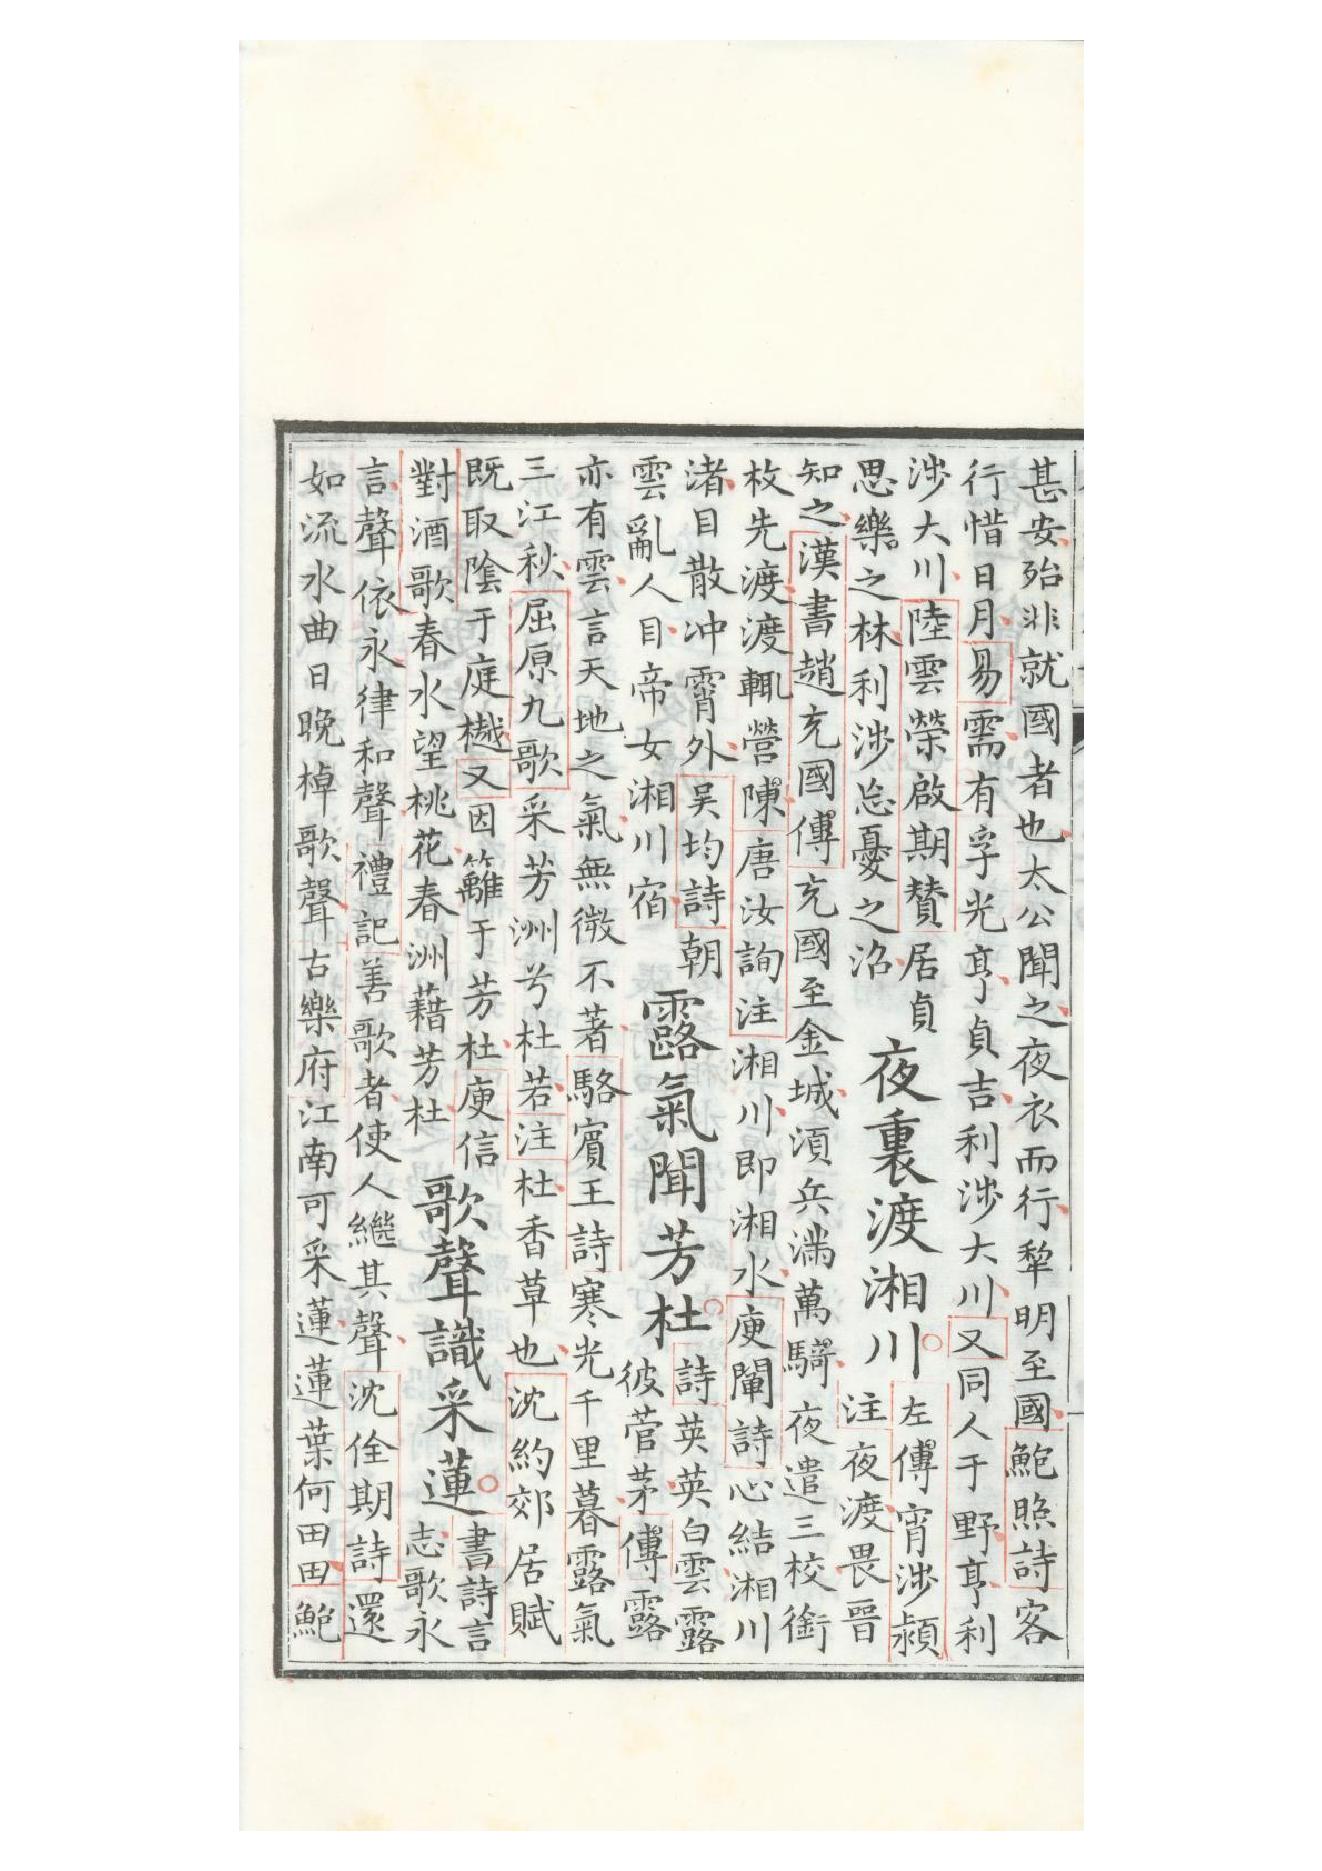 甚安殆非就國者也太公聞之夜衣而行犂明至國鮑照詩客
行惜日月易需有孚光亨貞吉利涉大川又同人于野亨利
涉大川陸雲榮啟期贊居貞
思樂之林利涉忘憂之沼
夜裏渡湘川
左傳宵涉潁
注夜渡畏晉
知之漢書趙充國傳充國至金城須兵滿萬騎夜遣三校銜
枚先渡渡輒營陳唐汝詢注湘川即湘水庾闡詩心結湘川
渚目散冲霄外吳均詩朝
雲亂人目帝女湘川宿
露氣聞芳杜
詩英英白雲露
彼菅茅傳露
亦有雲言天地之氣無微不著駱賓王詩寒光千里暮露氣
三江秋屈原九歌采芳洲兮杜若注杜香草也沈約郊居賦
既取陰于庭樾又因籬于芳杜庾信
對酒歌春水望桃花春洲藉芳杜
歌聲識采蓮
書詩言
志歌永
言聲依永律和聲禮記善歌者使人繼其聲沈佺期詩還
如流水曲日晚棹歌聲古樂府江南可采蓮蓮葉何田田鮑